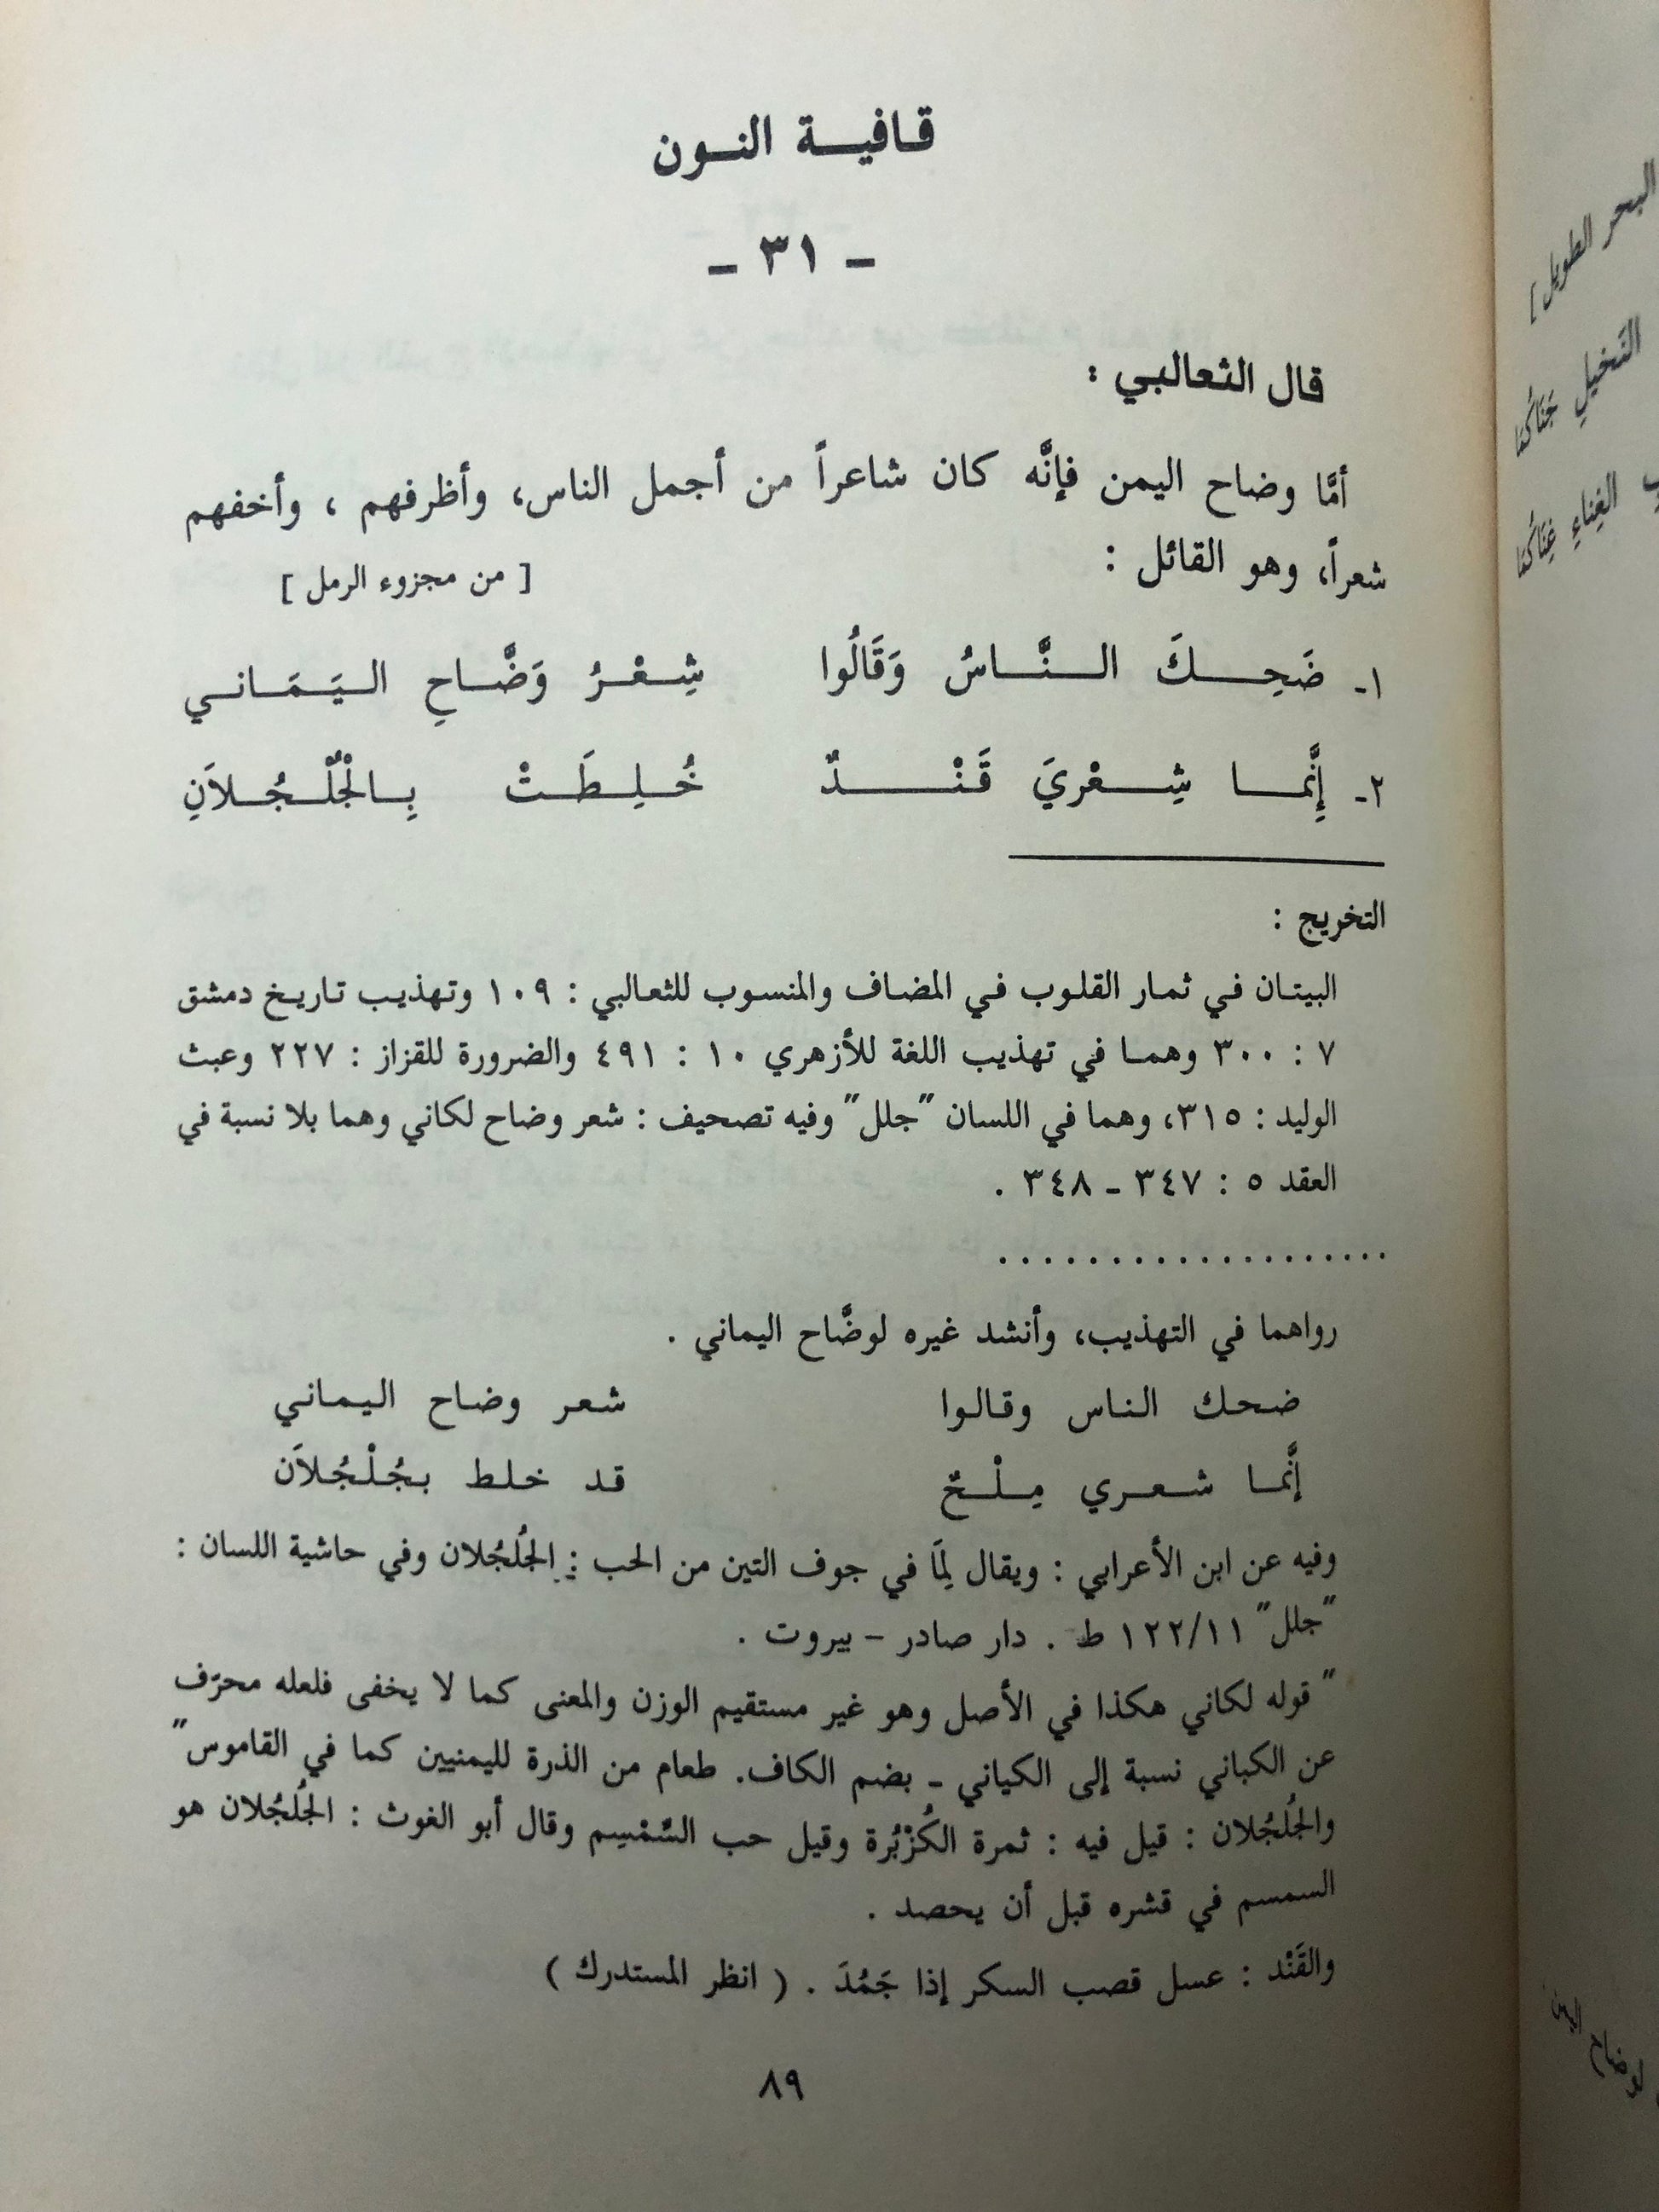 قافية النون
ـ ٣١ ـ
قال الثعالبي :
أمَّا وضاح اليمن فإنَّه كان شاعراً من أجمل الناس، وأظرفهم ، وأخفهم
شعراً، وهو القائل : [ من مجزوء الرمل ]
١ـ ضَحِكَ النَّاسُ وَقَالُوا شِعْرُ وَضَّاحِ اليَمَاني
٢ـ إِنَّما شِعْريَ قَنْدٌ خُلِطَتْ بِالْجُلْجُلاَنِ
التخريج :
البيتان في ثمار القلوب في المضاف والمنسوب للثعالبي : ١٠٩ وتهذيب تاريخ دمشق
٧ : ٣٠٠ وهما في تهذيب اللغة للأزهري ١٠ : ٤٩١ والضرورة للقزاز : ٢٢٧ وعبث
الوليد : ٣١٥، وهما في اللسان "جلل" وفيه تصحيف : شعر وضاح لكاني وهما بلا نسبة في
العقد ٥ : ٣٤٧ ـ ٣٤٨ .
....................
رواهما في التهذيب، وأنشد غيره لوضَّاح اليماني .
ضحك الناس وقالوا شعر وضاح اليماني
إنَّما شعري مِلْحٌ قد خلط بجُلْجُلاَن
وفيه عن ابن الأعرابي : ويقال لِمَا في جوف التين من الحب : الجُلجُلان وفي حاشية اللسان :
"جلل" ١٢٢/١١ ط . دار صادر – بيروت .
" قوله لكاني هكذا في الأصل وهو غير مستقيم الوزن والمعنى كما لا يخفى فلعله محرّف
عن الكباني نسبة إلى الكياني ـ بضم الكاف. طعام من الذرة لليمنيين كما في القاموس"
والجُلجُلان : قيل فيه : ثمرة الكُزْبُرة وقيل حب السِّمْسِم وقال أبو الغوث : الجُلجُلان هو
السمسم في قشره قبل أن يحصد .
والقَنْد : عسل قصب السكر إذا جَمُدَ . ( انظر المستدرك )
٨٩
البحر الطويل ]
النَخيلِ جَنَاكُمَا
الغِناءِ غِنَاكُمَا
لوضاح اليمن